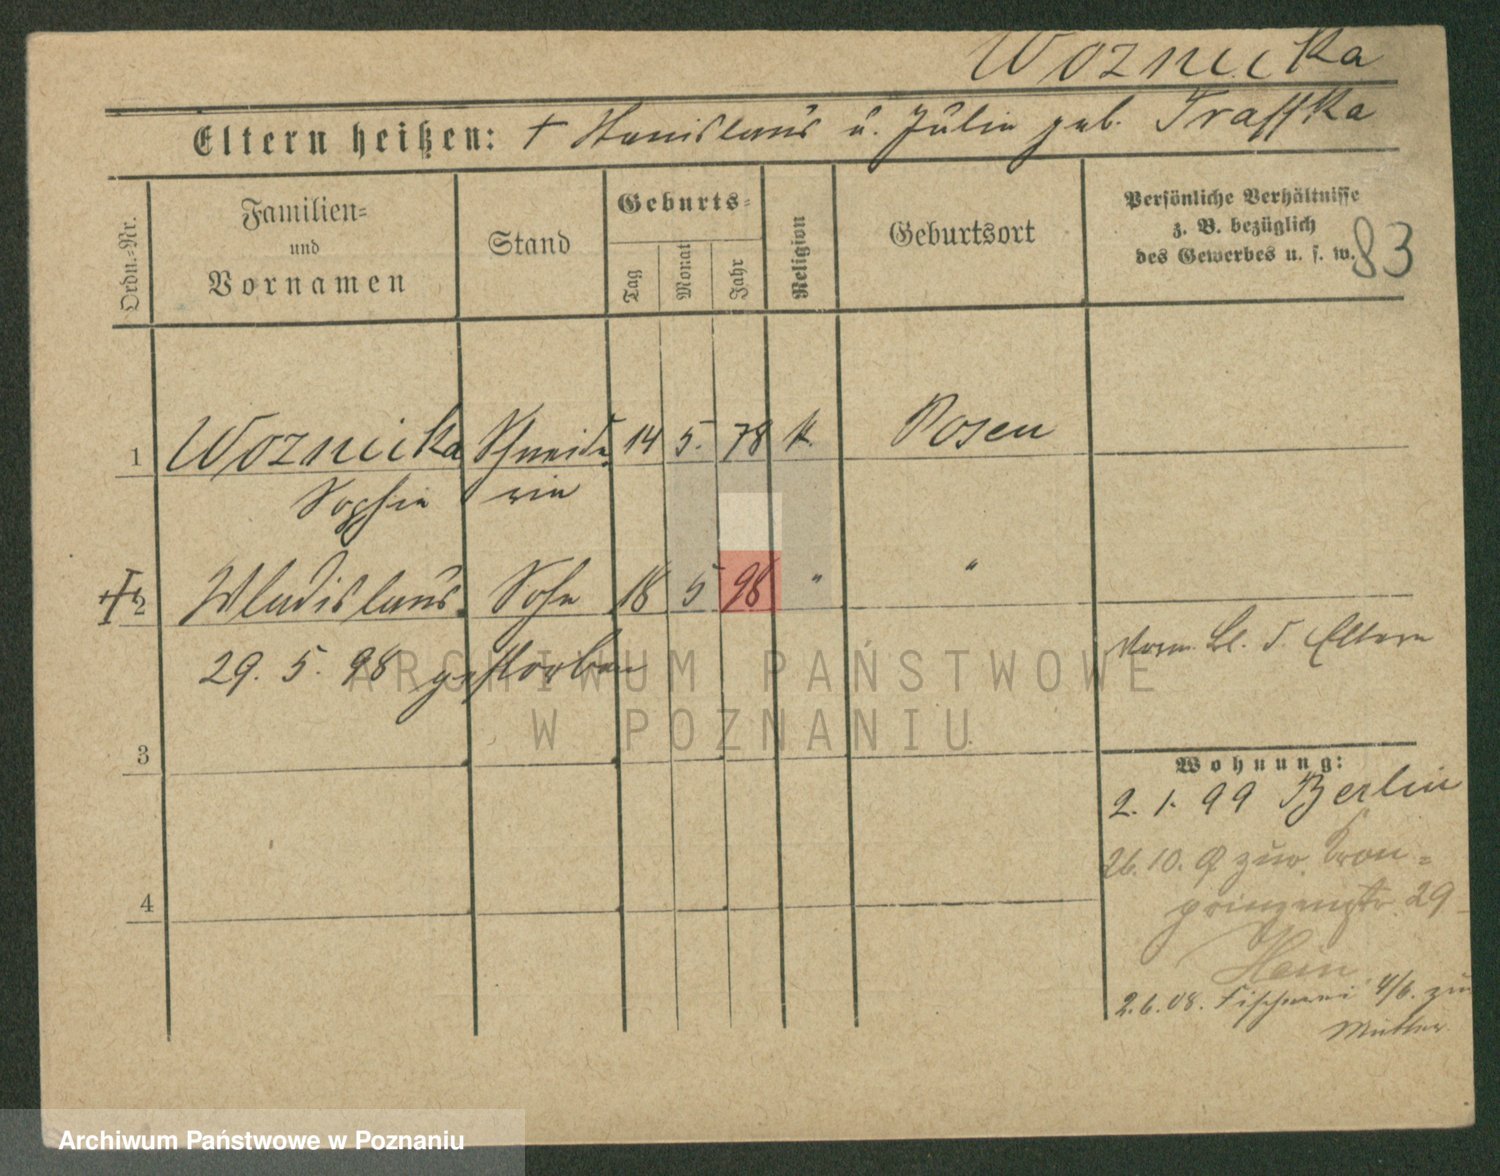 Woznicka
Eltern heißen: † Stanislaus u. Julie geb. Traffka
Ordn.-Nr.
Familien-
und
Vornamen
Stand
Geburts-
Tag
Monat
Jahr
Religion
Geburtsort
Persönliche Verhältnisse
z. B. bezüglich
des Gewerbes u. s. w.
83
1 Woznicka Schneide 14 5. 78 k. Posen
Sophie rin
2 Wladislaus Sohn 18 5 98 " "
29. 5. 98 gestorben
Bl. d. Eltern
3
Wohnung:
2. 1. 99 Berlin
26. 10. zur. Kron-
prinzenstr. 29
4
2.6.08. Fischerei 4/6. zur
Mutter
ARCHIWUM PAŃSTWOWE
W POZNANIU
Archiwum Państwowe w Poznaniu